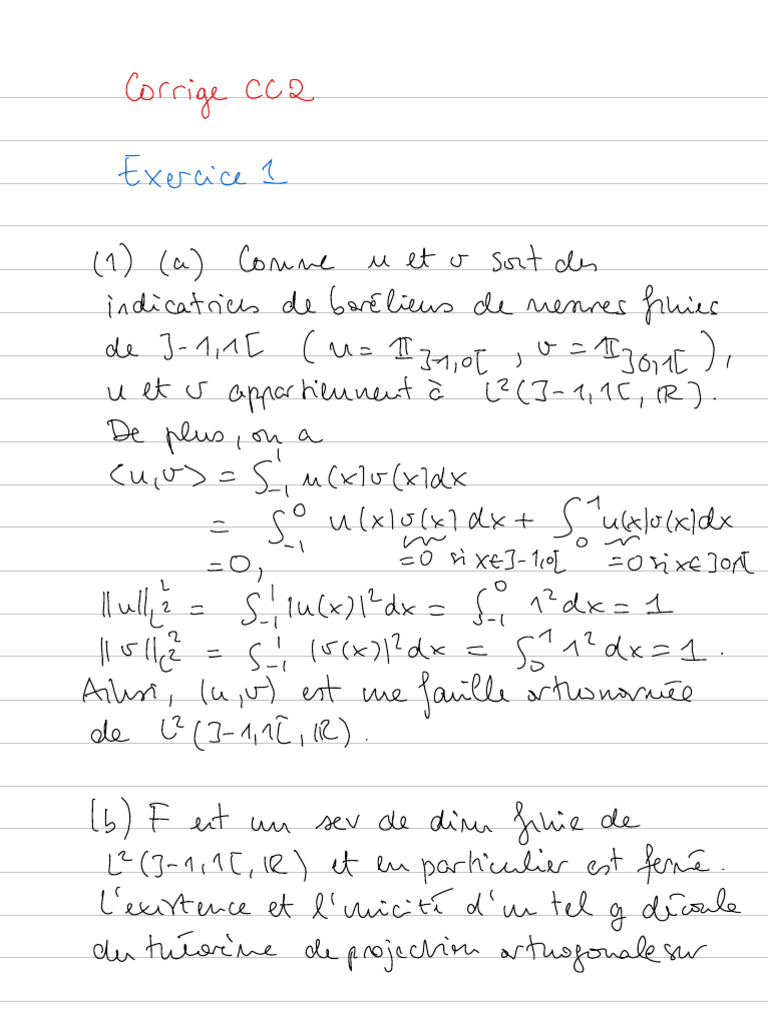 Corrige CC2
Exercice 1
(1) (a) Comme u et v sont des
indicatrices de boréliens de mesures finies
de ]-1,1[ ( u = 𝟙_]-1,0[ , v = 𝟙_]0,1[ ),
u et v appartiennent à L²(]-1,1[, ℝ).
De plus, on a
<u,v> = ∫_{-1}^{1} u(x)v(x)dx
= ∫_{-1}^{0} u(x)v(x)dx + ∫_{0}^{1} u(x)v(x)dx
= 0, =0 si x∈]-1,0[ =0 si x∈]0,1[
||u||_{L²}^2 = ∫_{-1}^{1} |u(x)|² dx = ∫_{-1}^{0} 1² dx = 1
||v||_{L²}^2 = ∫_{-1}^{1} |v(x)|² dx = ∫_{0}^{1} 1² dx = 1.
Ainsi, (u,v) est une famille orthonormée
de L²(]-1,1[, ℝ).
(b) F est un sev de dim finie de
L²(]-1,1[, ℝ) et en particulier est fermé.
L'existence et l'unicité d'un tel g découle
du théorème de projection orthogonale sur